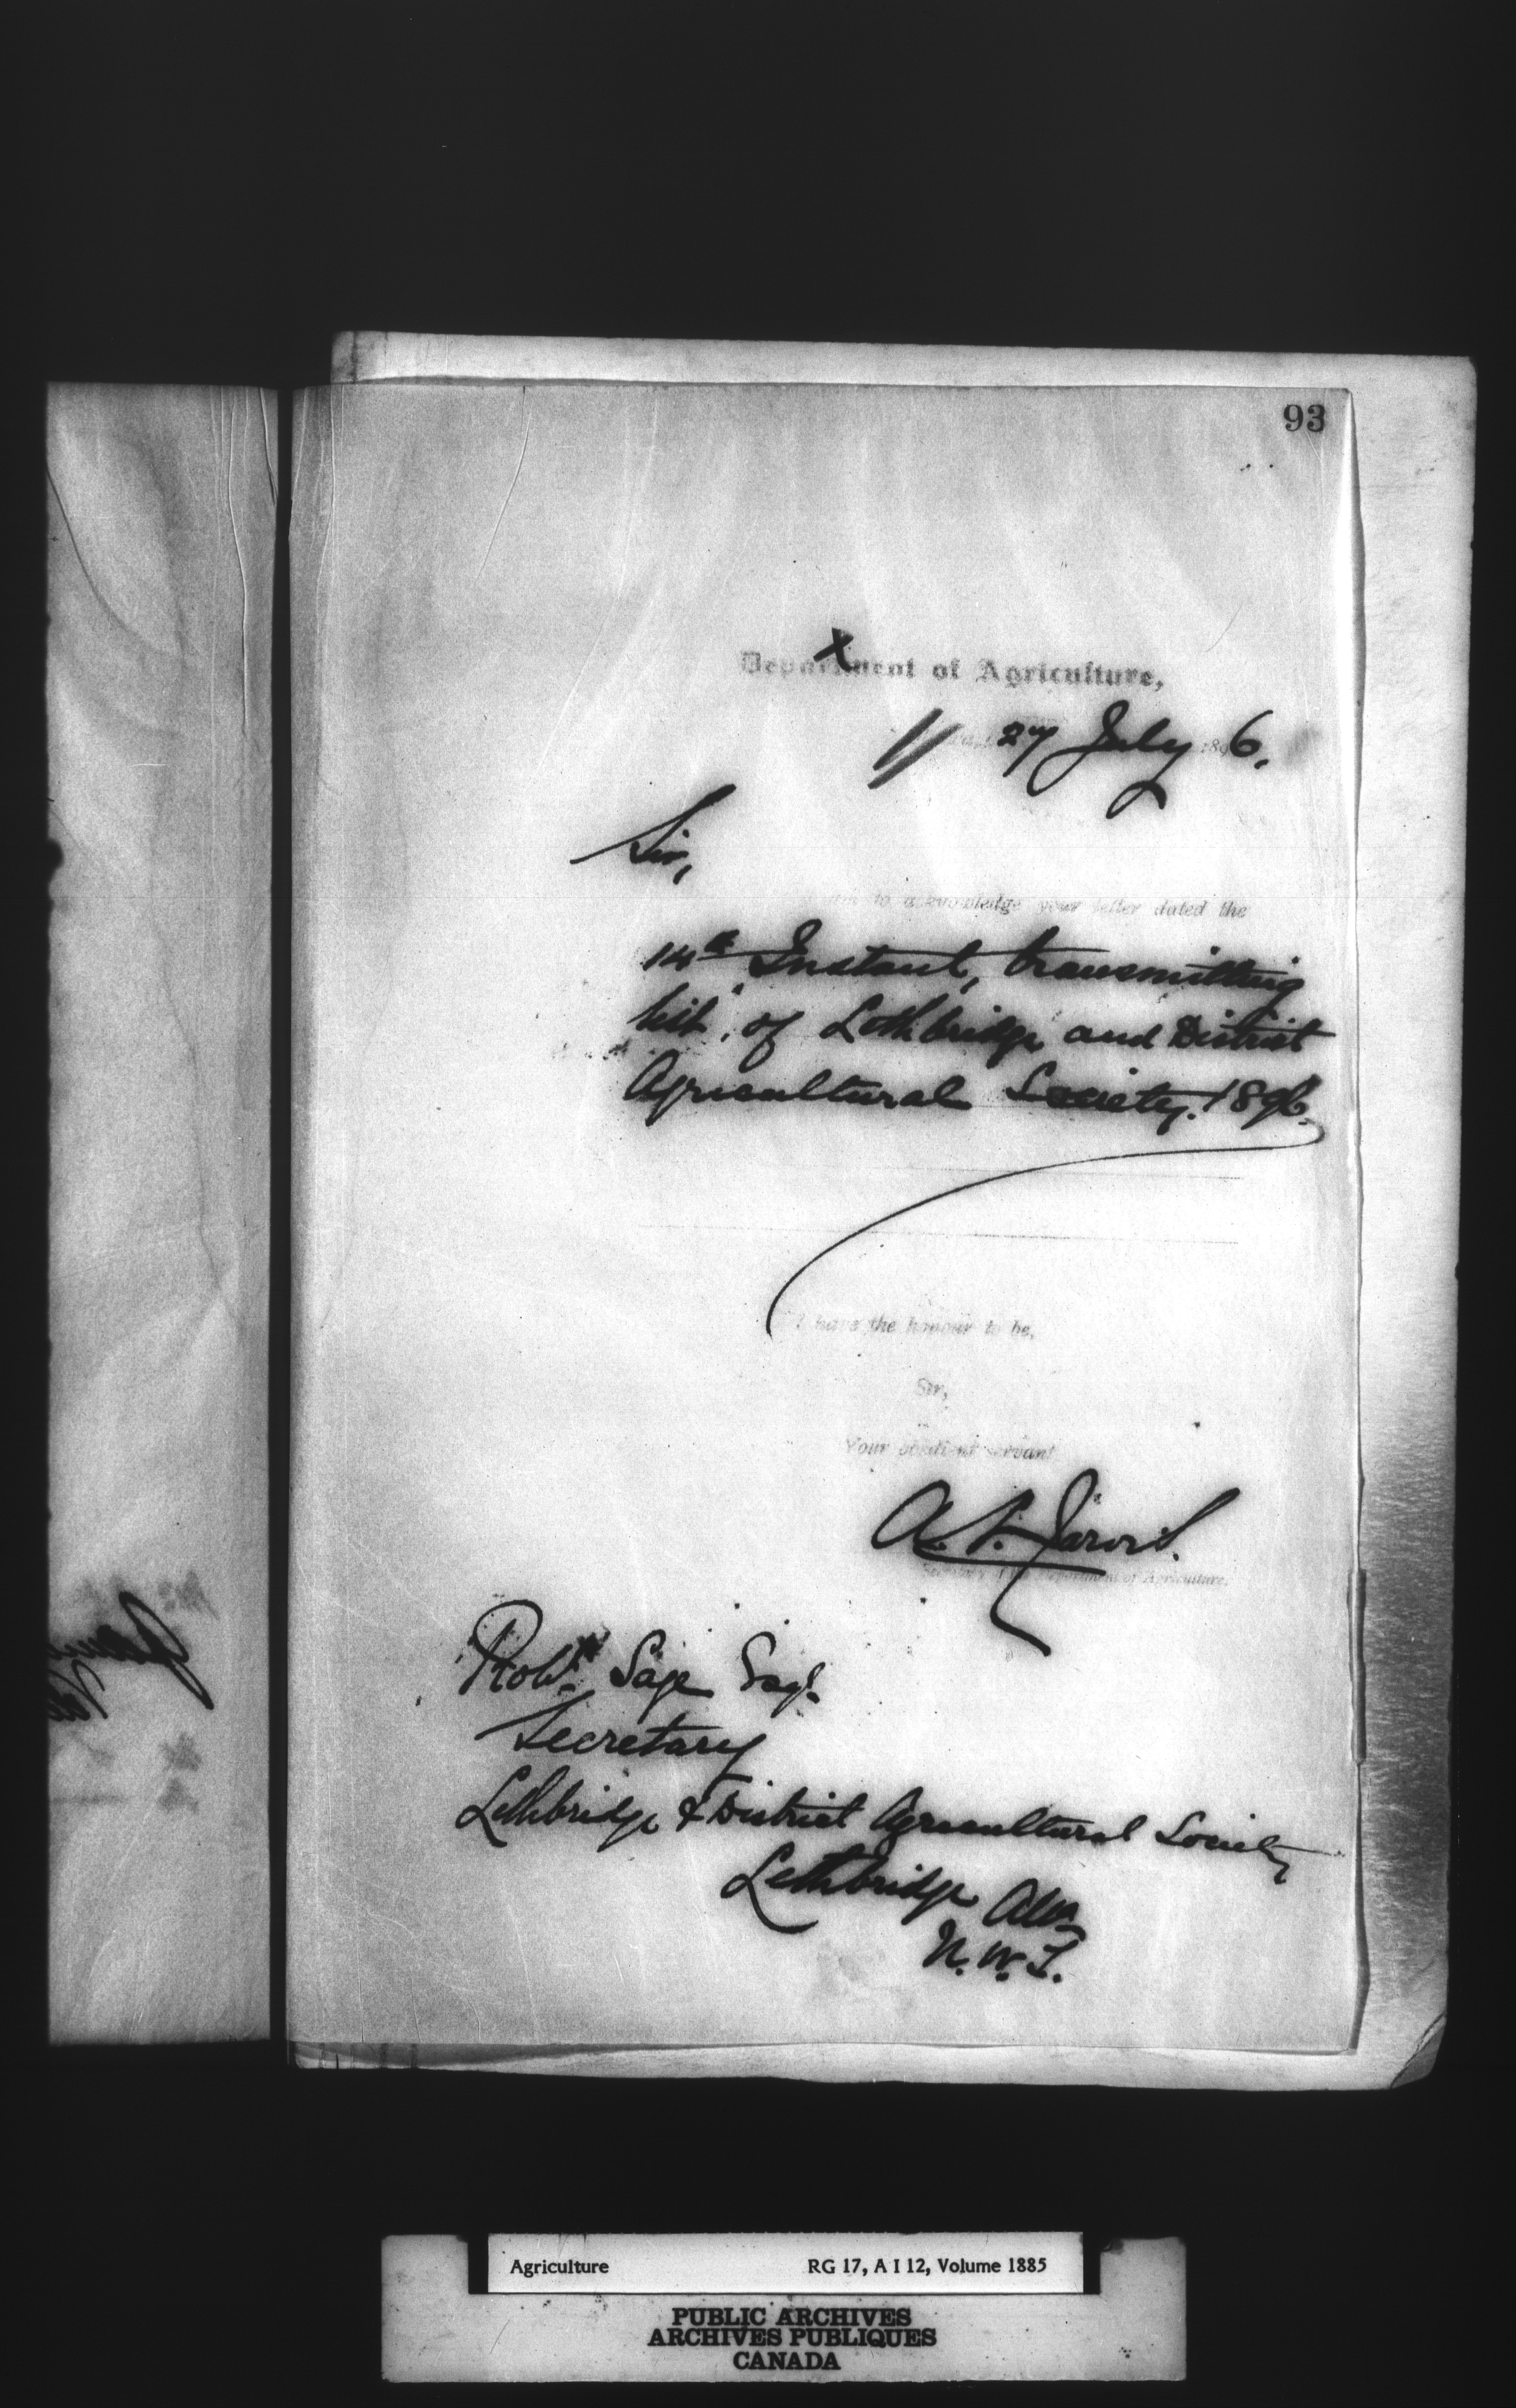 93
x
Department of Agriculture,
27 July 1896.
Sir,
to acknowledge your letter dated the
14th Instant, transmitting
list, of Lethbridge and District
Agricultural Society. 1896.
I have the honour to be,
Sir,
Your obedient servant
A. P. Jarvis.
Secretary Department of Agriculture.
Robt. Sage Esqr.
Secretary
Lethbridge & District Agricultural Society
Lethbridge Alta
N.W.T.
Agriculture RG 17, A I 12, Volume 1885
PUBLIC ARCHIVES
ARCHIVES PUBLIQUES
CANADA